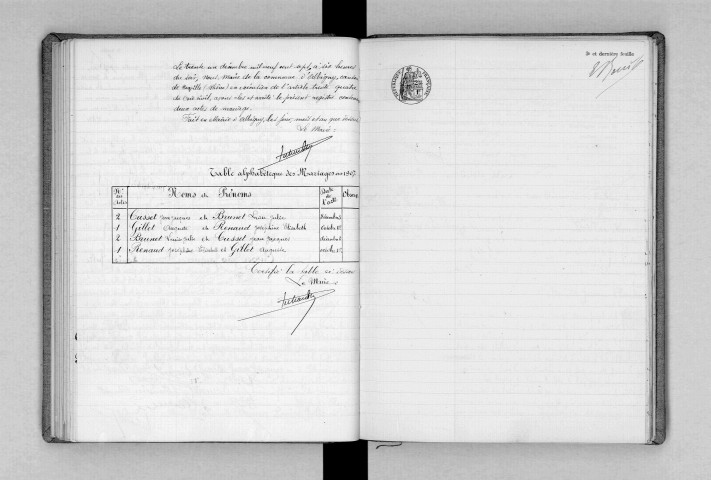 Le trente un décembre mil neuf cent sept, à six heures
du soir, nous Maire de la commune d'Albigny, canton
de Neuville (Rhône) en exécution de l'article trente quatre
du Code civil, avons clos et arrêté le présent registre contenant
deux actes de mariage.
Fait en Mairie d'Albigny, les jour, mois et an que dessus
Le Maire
Table alphabétique des Mariages 1907
Nos des Actes Noms et Prénoms Date de l'acte Observ
2 Cusset Jean Jacques et Brunet décembre
1 Gillet Auguste et Renaud Joséphine Elisabeth octobre
2 Brunet et Cusset Jean Jacques décembre
1 Renaud Joséphine et Gillet Auguste octobre
Certifié la table ci dessus
Le Maire
3e et dernière feuille
RÉPUBLIQUE FRANÇAISE